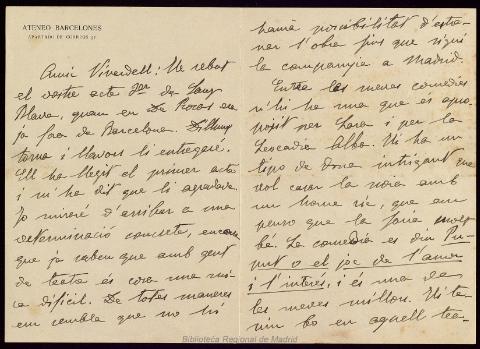 ATENEO BARCELONES
APARTADO DE CORREOS
Amic Vivardell: He rebut
el vostre acte 3er de Sang
Blava, quan en De Rosas era
ja fora de Barcelona. Dilluns
torna i llavors li entregaré.
Ell ha llegit el primer acte
i m'ha dit que li agradava.
Jo miraré d'arribar a una
determinació concreta, encara
que ja sabeu que amb gent
de teatre és cosa una mi-
ca difícil. De totes maneres
em sembla que no hi
haurà possibilitat d'estre-
nar l'obra fins que sigui
la companyia a Madrid.
Entre les meves comedies
n'hi ha una que és apro-
pòsit per Lara i per la
Leocadia Alba. Hi ha un
tipo de dona intrigant que
vol casar la noia amb
un home ric, que em
penso que la faria molt
bé. La comedia es diu
o el joc de l'amor
i l'interés, i és una de
les meves millors. Hi te-
nim bo en aquell tea-
Biblioteca Regional de Madrid